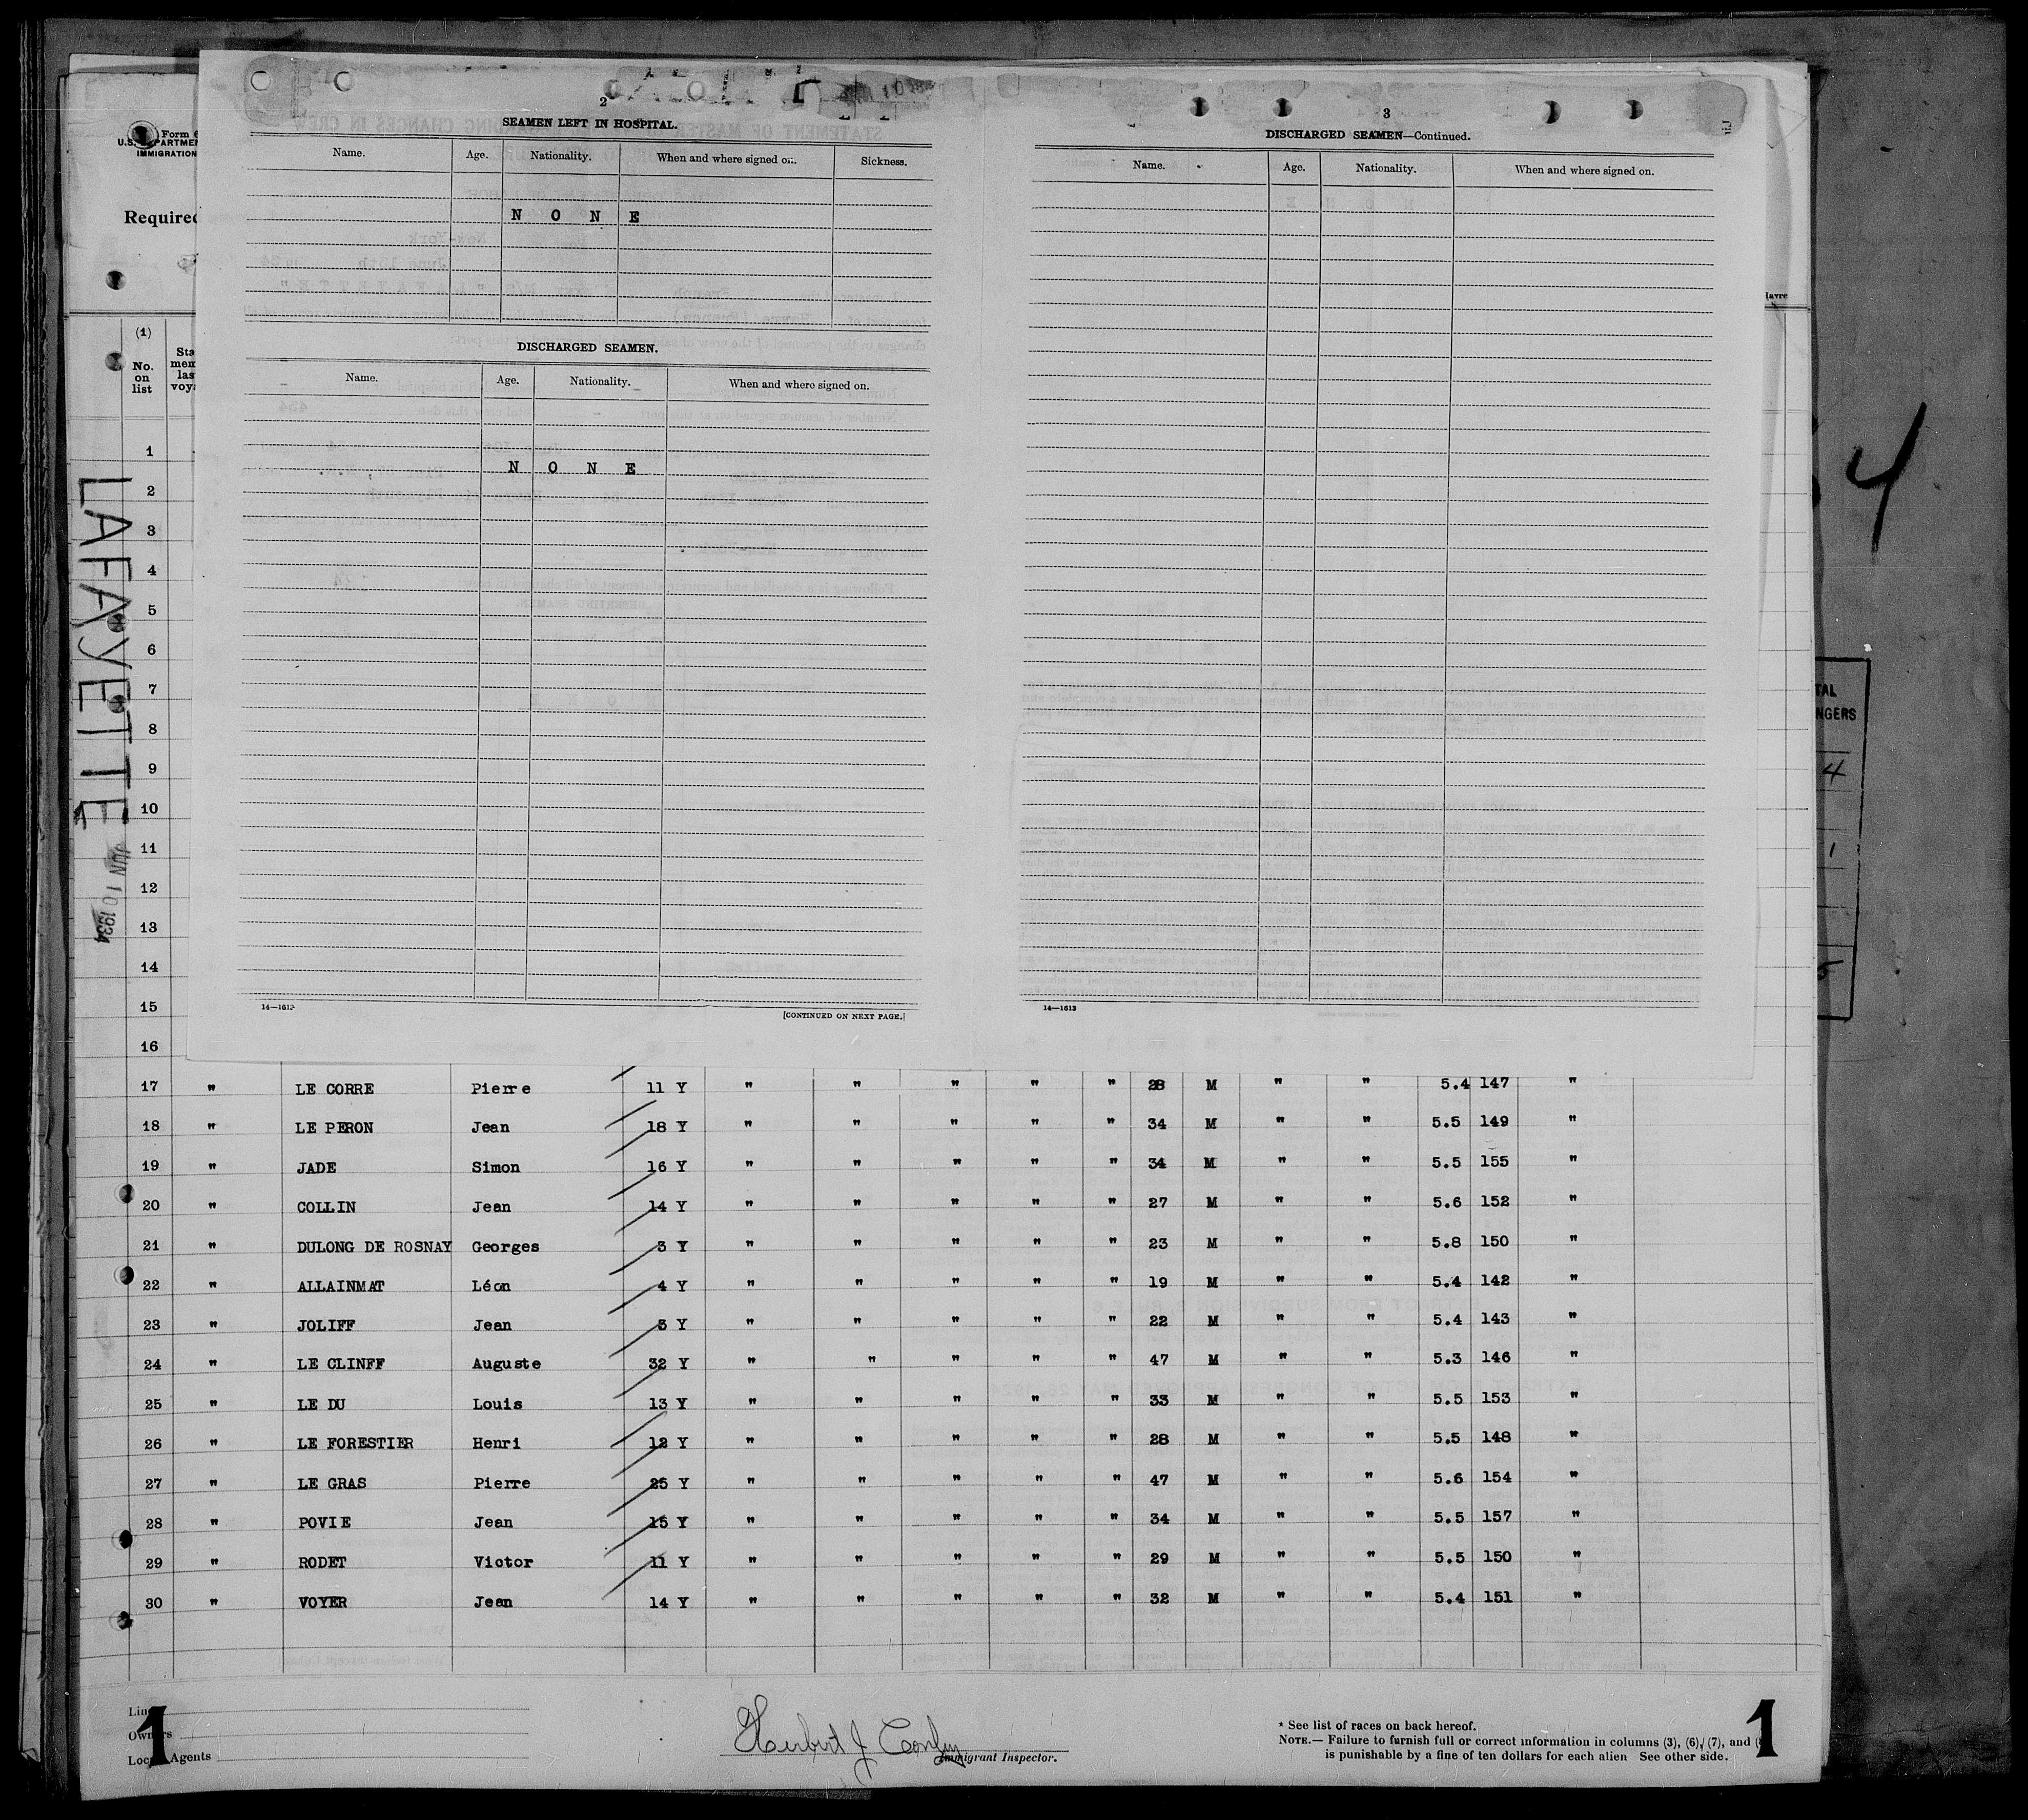 2
SEAMEN LEFT IN HOSPITAL.
Name. Age. Nationality. When and where signed on. Sickness.
N O N E
DISCHARGED SEAMEN.
Name. Age. Nationality. When and where signed on.
N O N E
14—1613
[CONTINUED ON NEXT PAGE.]
3
DISCHARGED SEAMEN—Continued.
Name. Age. Nationality. When and where signed on.
14—1613
Form 6
U.S. DEPARTMEN
IMMIGRATION
Required
(1)
No.
on
list
Sta
mem
las
voya
LAFAYETTE
JUN 10 1934
4
TAL
NGERS
4
1
5
1
2
3
4
5
6
7
8
9
10
11
12
13
14
15
16
17 " LE CORRE Pierre 11 Y " " " " " 28 M " " 5.4 147 "
18 " LE PERON Jean 18 Y " " " " " 34 M " " 5.5 149 "
19 " JADE Simon 16 Y " " " " " 34 M " " 5.5 155 "
20 " COLLIN Jean 14 Y " " " " " 27 M " " 5.6 152 "
21 " DULONG DE ROSNAY Georges 3 Y " " " " " 23 M " " 5.8 150 "
22 " ALLAINMAT Léon 4 Y " " " " " 19 M " " 5.4 142 "
23 " JOLIFF Jean 3 Y " " " " " 22 M " " 5.4 143 "
24 " LE CLINFF Auguste 32 Y " " " " " 47 M " " 5.3 146 "
25 " LE DU Louis 13 Y " " " " " 33 M " " 5.5 153 "
26 " LE FORESTIER Henri 12 Y " " " " " 28 M " " 5.5 148 "
27 " LE GRAS Pierre 25 Y " " " " " 47 M " " 5.6 154 "
28 " POVIE Jean 15 Y " " " " " 34 M " " 5.5 157 "
29 " RODET Victor 11 Y " " " " " 29 M " " 5.5 150 "
30 " VOYER Jean 14 Y " " " " " 32 M " " 5.4 151 "
Line
Owners
Local Agents
1
Herbert J
Immigrant Inspector.
* See list of races on back hereof.
NOTE.— Failure to furnish full or correct information in columns (3), (6), (7), and (
is punishable by a fine of ten dollars for each alien See other side.
1